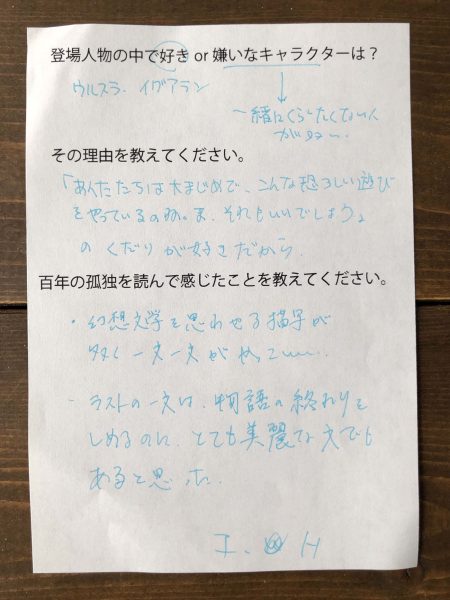 登場人物の中で好き or 嫌いなキャラクターは？
ウルスラ．イグアラン
一緒にくらしたくない人
が多い．
その理由を教えてください。
「あんたたちは大まじめで、こんな恐ろしい遊び
をやっているのね。ま、それもいいでしょう」
のくだりが好きだから．
百年の孤独を読んで感じたことを教えてください。
・幻想文学を思わせる描写が
多く一文一文が
・ラストの一文は、物語の終わりを
しめるのに、とても美麗な文でも
あると思った．
I. H